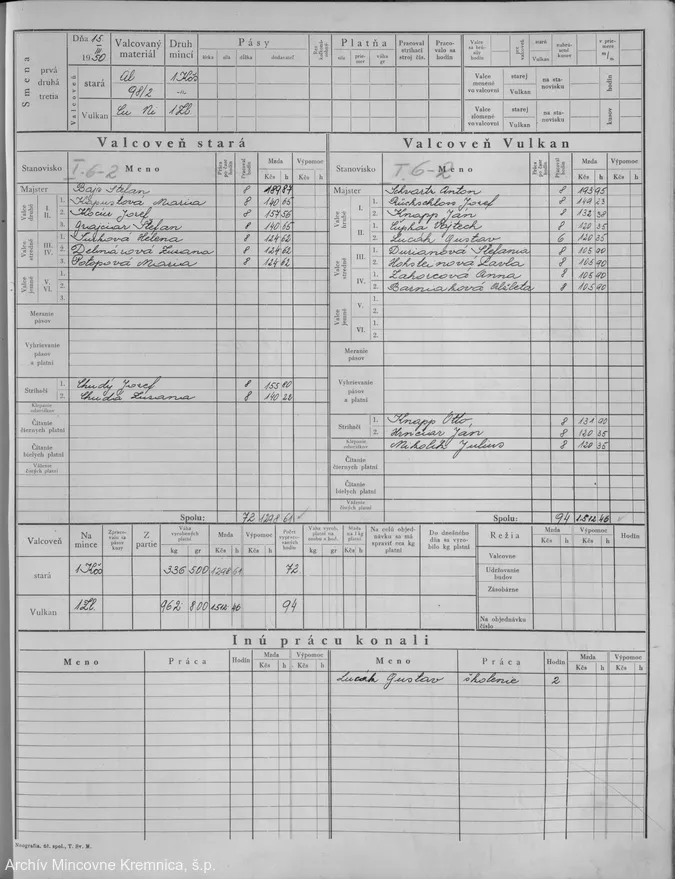 Smena
prvá
druhá
tretia
Dňa 15
III
1950
Valcovaný materiál
Druh mincí
Pásy
šírka sila dĺžka dodávateľ
Platňa
sila priemer váha gr
Pracoval strihací stroj čís.
Pracovalo sa hodín
Valcovňa
stará
Al
98/2
1 Kčs
Vulkan
Cu Ni
1 Zl
Valce menené vo valcovni
Valce zlomené vo valcovni
starej
Vulkan
na stanovisku
hodín
kusov
Valcoveň stará
Valcoveň Vulkan
Stanovisko I. 6-2 Meno Mzda Výpomoc
Kčs h Kčs h
Majster Bap Štefan 8 189 87
Valce hrubé I. II.
1.
2. Kociu Jozef 8 157 56
3. Grajciar Štefan 8 140 65
Valce stredné III. IV.
1. Turkova Helena 8 124 62
2. Delmárová Zuzana 8 124 62
3. Potopová Maria 8 124 62
Valce jemné V. VI.
1.
2.
3.
Meranie pásov
Vyhrievanie pásov a platní
Strihači
1. Chudý Jozef 8 155 80
2. Chudá Zuzana 8 140 22
Klepanie odzvážkov
Čítanie čiernych platní
Čítanie bielych platní
Váženie čistých platní
Spolu: 72 1298 61
Stanovisko I. 6-2 Meno Mzda Výpomoc
Kčs h Kčs h
Majster Schvartz Anton 8 193 95
Valce hrubé
I. 1. Rückschloss Jozef 8 149 23
2. Knapp Ján 8 132 38
II. 1. Cipka Vojtech 8 120 35
2. Lucák Gustav 6 120 35
Valce stredné
III. 1. Durianová Štefania 8 105 90
2. Hohsteinová Lavla 8 105 90
IV. 1. Zahorcová Anna 8 105 90
2. Barniaková Alžbeta 8 105 90
Valce jemné
V. 1.
2.
VI. 1.
2.
Meranie pásov
Vyhrievanie pásov a platní
Strihači
1. Knapp Otto 8 131 90
2. Hrnčiar Ján 8 120 35
Mikolík Julius 8 120 35
Čítanie čiernych platní
Čítanie bielych platní
Váženie čistých platní
Spolu: 94 1512 46
Valcoveň
Na mince
Z partie
Váha vyrobených platní
kg gr
Mzda
Kčs h
Výpomoc
Kčs h
Počet vypracovaných hodín
Na celú objednávku sa má spraviť ešte kg platní
Do dnešného dňa sa vyrobilo kg platní
Réžia
Hodín
Mzda
Kčs h
Výpomoc
Kčs h
stará 1 Kčs 336 500 1298 61 72
Vulkan 1 Zl. 962 800 1512 46 94
Valcovne
Udržovanie budov
Zásobárne
Na objednávku číslo
Inú prácu konali
Meno Práca Hodín Mzda Výpomoc
Kčs h Kčs h
Meno Práca Hodín Mzda Výpomoc
Kčs h Kčs h
Lucák Gustav školenie 2
Neografia, úč. spol., T. Sv. M.
Archív Mincovne Kremnica, š.p.